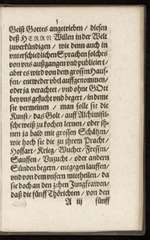 Geist Gottes angetrieben / diesen
deß HERRN Willen in der Welt
zuverkündigen / wie dann auch in
unterschiedlichen Sprachen solches
von uns außgangen und publiciert /
aber es wird von dem grossen Hauf-
fen / entweder übel auffgenommen /
oder ja verachtet / und ohne GOtt
bey uns gesucht und begert / in deme
sie vermeinen / man solle sie die
Kunst / das Gold / auff Alchimisti-
sche weiß zu kochen lernen / oder ih-
nen ja bald mit grossen Schätzen /
wie hoch sie die zu ihrem Pracht /
Hoffart / Krieg / Wucher / Fressen /
Sauffen / Unzucht / oder andern
Sünden begern / entgegen lauffen /
und von dem unsern mittheilen / da
sie doch an den zehen Jungfrawen /
daß die fünff Thörichten / von den
A iij fünff